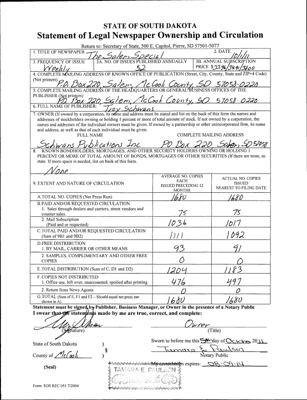 STATE OF SOUTH DAKOTA
Statement of Legal Newspaper Ownership and Circulation
Return to: Secretary of State, 500 E. Capitol, Pierre, SD 57501-5077
1. TITLE OF NEWSPAPER The Salem Special
2. DATE
3. FREQUENCY OF ISSUE Weekly
3A. NO. OF ISSUES PUBLISHED ANNUALLY 52
3B. ANNUAL SUBSCRIPTION PRICE
4. COMPLETE MAILING ADDRESS OF KNOWN OFFICE OF PUBLICATION (Street, City, County, State and ZIP+4 Code) (Not printers)
P.O. Box 220, Salem, McCook County, SD 57058-0220
5. COMPLETE MAILING ADDRESS OF THE HEADQUARTERS OF GENERAL BUSINESS OFFICES OF THE PUBLISHER (Not printer)
P.O. Box 220, Salem, McCook County, SD 57058-0220
6. FULL NAME OF PUBLISHER: Troy Schwans
7. OWNER (If owned by a corporation, its name and address must be stated and list on the back of this form the names and addresses of stockholders owning or holding 1 percent or more of total amount of stock. If not owned by a corporation, the names and addresses of the individual owners must be given. If owned by a partnership or other unincorporated firm, its name and address, as well as that of each individual must be given.
FULL NAME COMPLETE MAILING ADDRESS
Schwans Publication Inc. PO Box 220, Salem, SD 57058
8. KNOWN BONDHOLDERS, MORTGAGES, AND OTHER SECURITY HOLDERS OWNING OR HOLDING 1 PERCENT OR MORE OF TOTAL AMOUNT OF BONDS, MORTGAGES OR OTHER SECURITIES (If there are none, so state. If more space is needed, list on back of this form.
None
9. EXTENT AND NATURE OF CIRCULATION
AVERAGE NO. COPIES EACH ISSUED PRECEDING 12 MONTHS
ACTUAL NO. COPIES ISSUED NEAREST TO FILING DATE
A. TOTAL NO. COPIES (Net Press Run) 1680 1680
B. PAID AND/OR REQUESTED CIRCULATION
1. Sales through dealers and carriers, street vendors and counter sales. 75 75
2. Mail Subscription (Paid and or requested) 1036 1017
C. TOTAL PAID AND/OR REQUESTED CIRCULATION (Sum of 9B1 and 9B2) 1111 1092
D. FREE DISTRIBUTION
1. BY MAIL, CARRIER OR OTHER MEANS 93 91
2. SAMPLES, COMPLIMENTARY AND OTHER FREE COPIES 0 0
E. TOTAL DISTRIBUTION (Sum of C, D1 and D2) 1204 1183
F. COPIES NOT DISTRIBUTED
1. Office use, left over, unaccounted, spoiled after printing 476 497
2. Return from News Agents 0 0
G. TOTAL (Sum of E, F1 and F2 - Should equal net press run shown in A) 1680 1680
Statement must be signed by Publisher, Business Manager, or Owner in the presence of a Notary Public
I swear that the statements made by me are true, correct, and complete:
Owner
(Signature) (Title)
State of South Dakota )
County of McCook )
Sworn to before me this day of October
Tamara E. Paulson
Notary Public
(Seal)
TAMARA E. PAULSON
My commission expires: 08-09-14
Form: SOS REC 051 7/2004